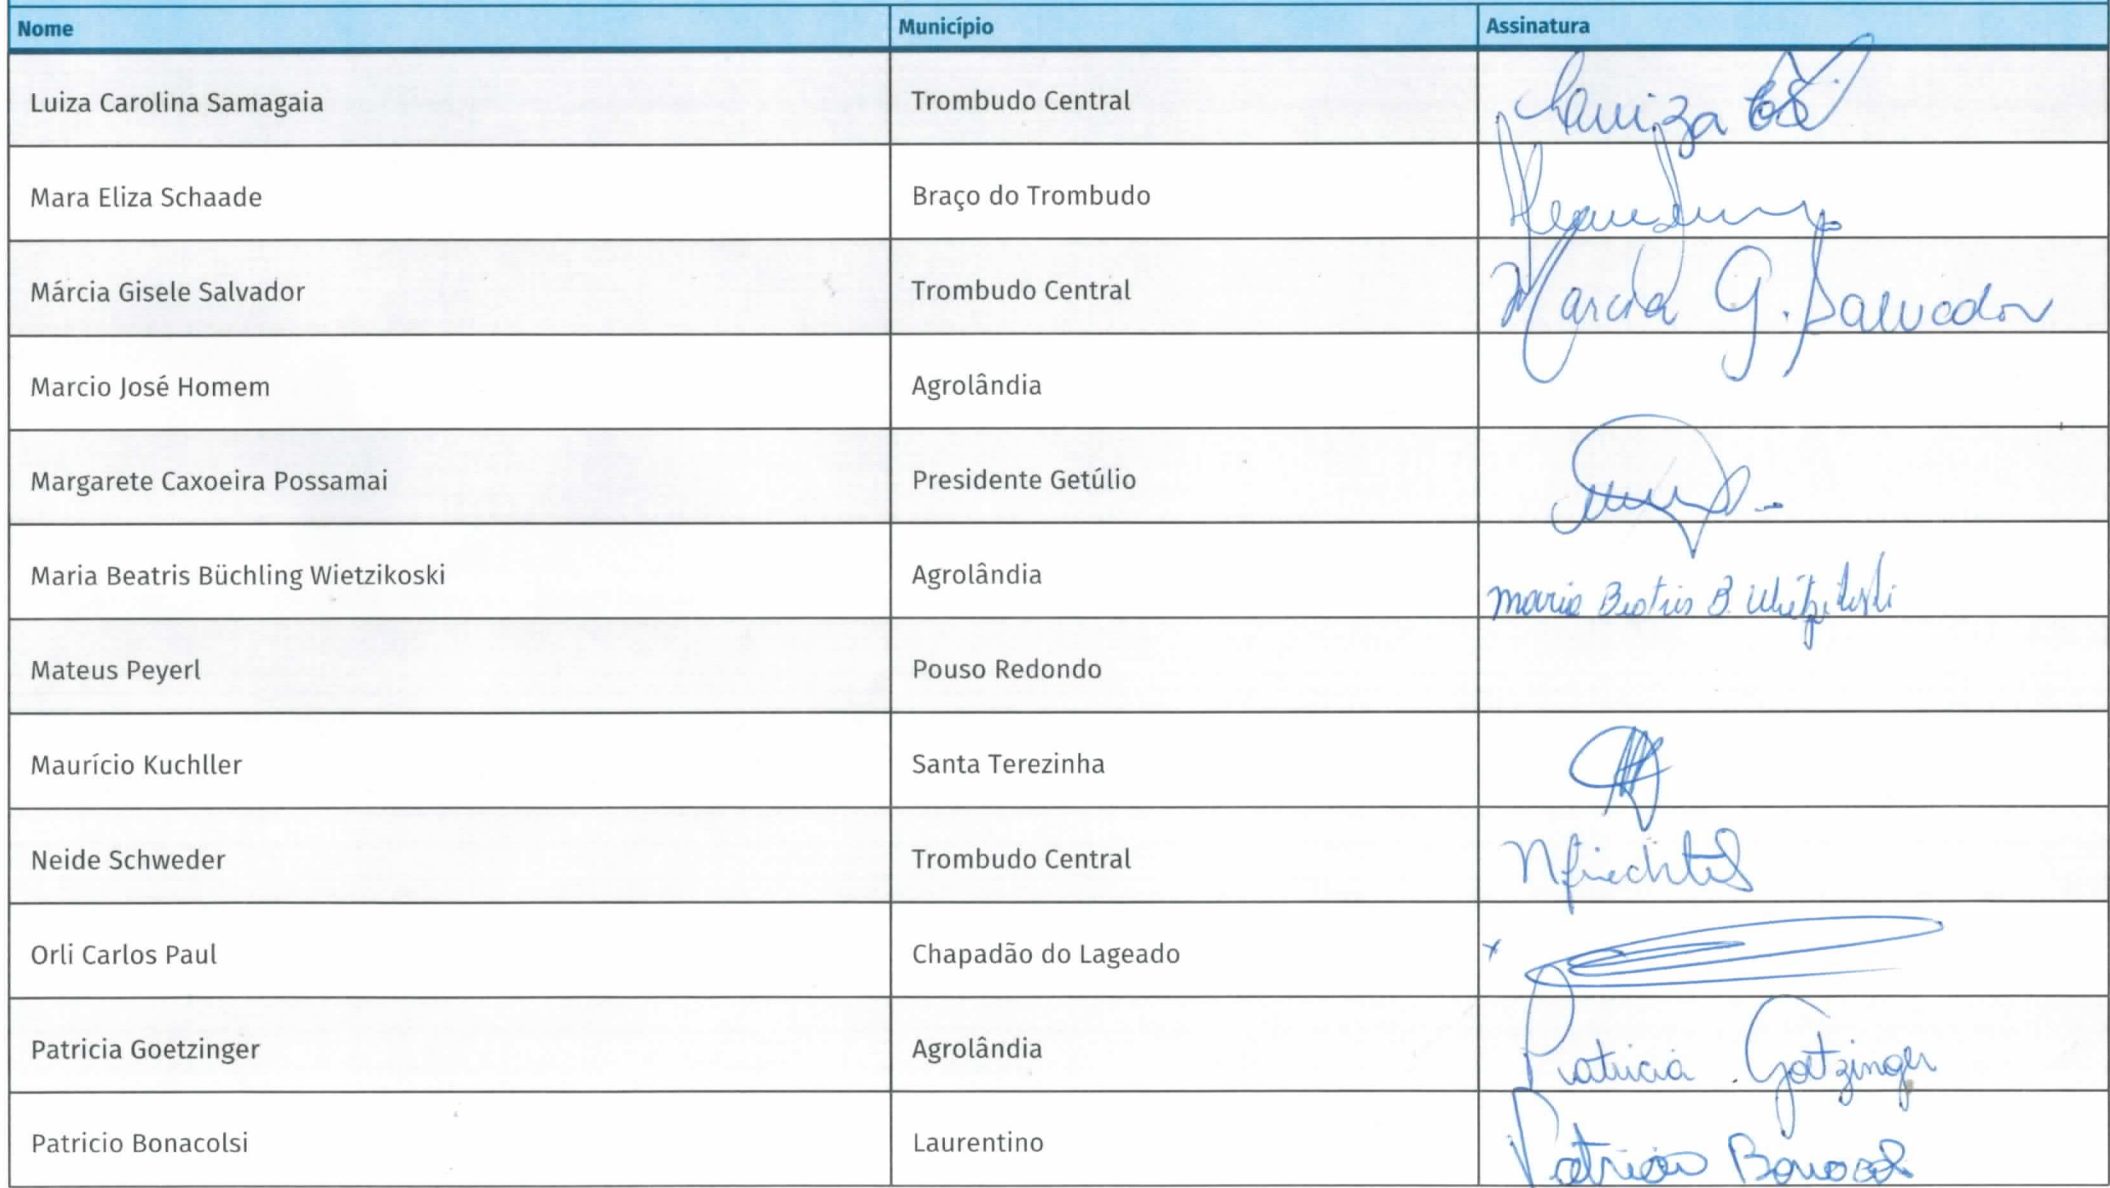 Nome Município Assinatura
Luiza Carolina Samagaia Trombudo Central Luiza
Mara Eliza Schaade Braço do Trombudo
Márcia Gisele Salvador Trombudo Central Marcia G. Salvador
Marcio José Homem Agrolândia
Margarete Caxoeira Possamai Presidente Getúlio
Maria Beatris Büchling Wietzikoski Agrolândia Maria Beatris B. Wietzikoski
Mateus Peyerl Pouso Redondo
Maurício Kuchller Santa Terezinha
Neide Schweder Trombudo Central
Orli Carlos Paul Chapadão do Lageado x
Patricia Goetzinger Agrolândia Patricia Goetzinger
Patricio Bonacolsi Laurentino Patricio